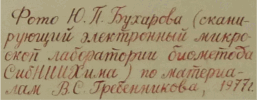 Фото Ю.П. Бухарова (скани-
рующий электронный микро-
скоп лаборатории биометода
СибНИИХима) по материа-
лам В.С. Гребенникова, 1977г.